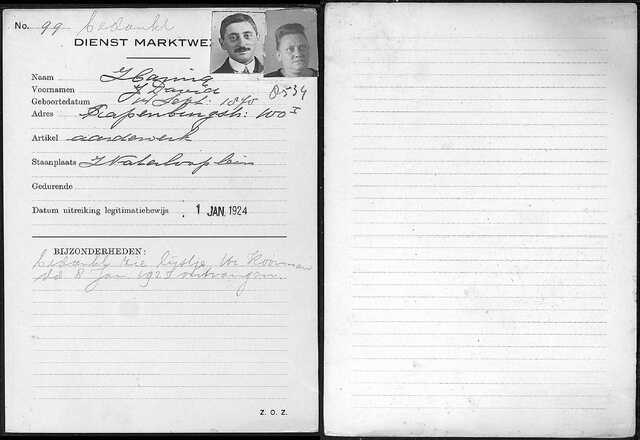 No. 99 bedankt
DIENST MARKTWE
Naam Haring
Voornamen David
Geboortedatum 14 Sept. 1870
Adres Rapenburgstr: 100 I
Artikel aardewerk
Staanplaats Waterlooplein
Gedurende
Datum uitreiking legitimatiebewijs 1 JAN. 1924
BIJZONDERHEDEN:
bedankt zie lijstje
dd 8 Jan 1925 ontvangen.
Z. O. Z.